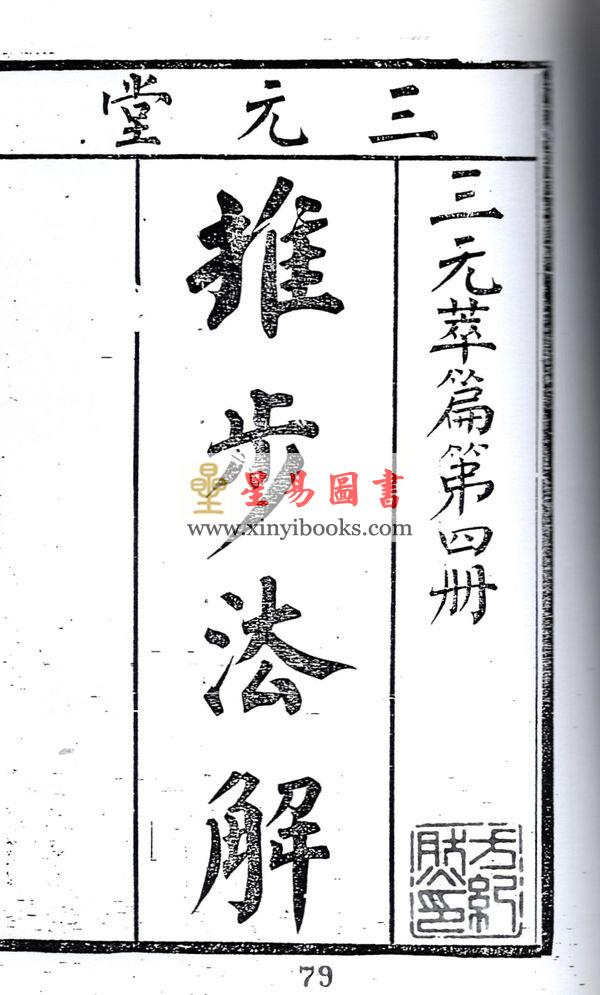 三元堂
三元萃篇第四册
推步法解
星易圖書
www.xinyibooks.com
79